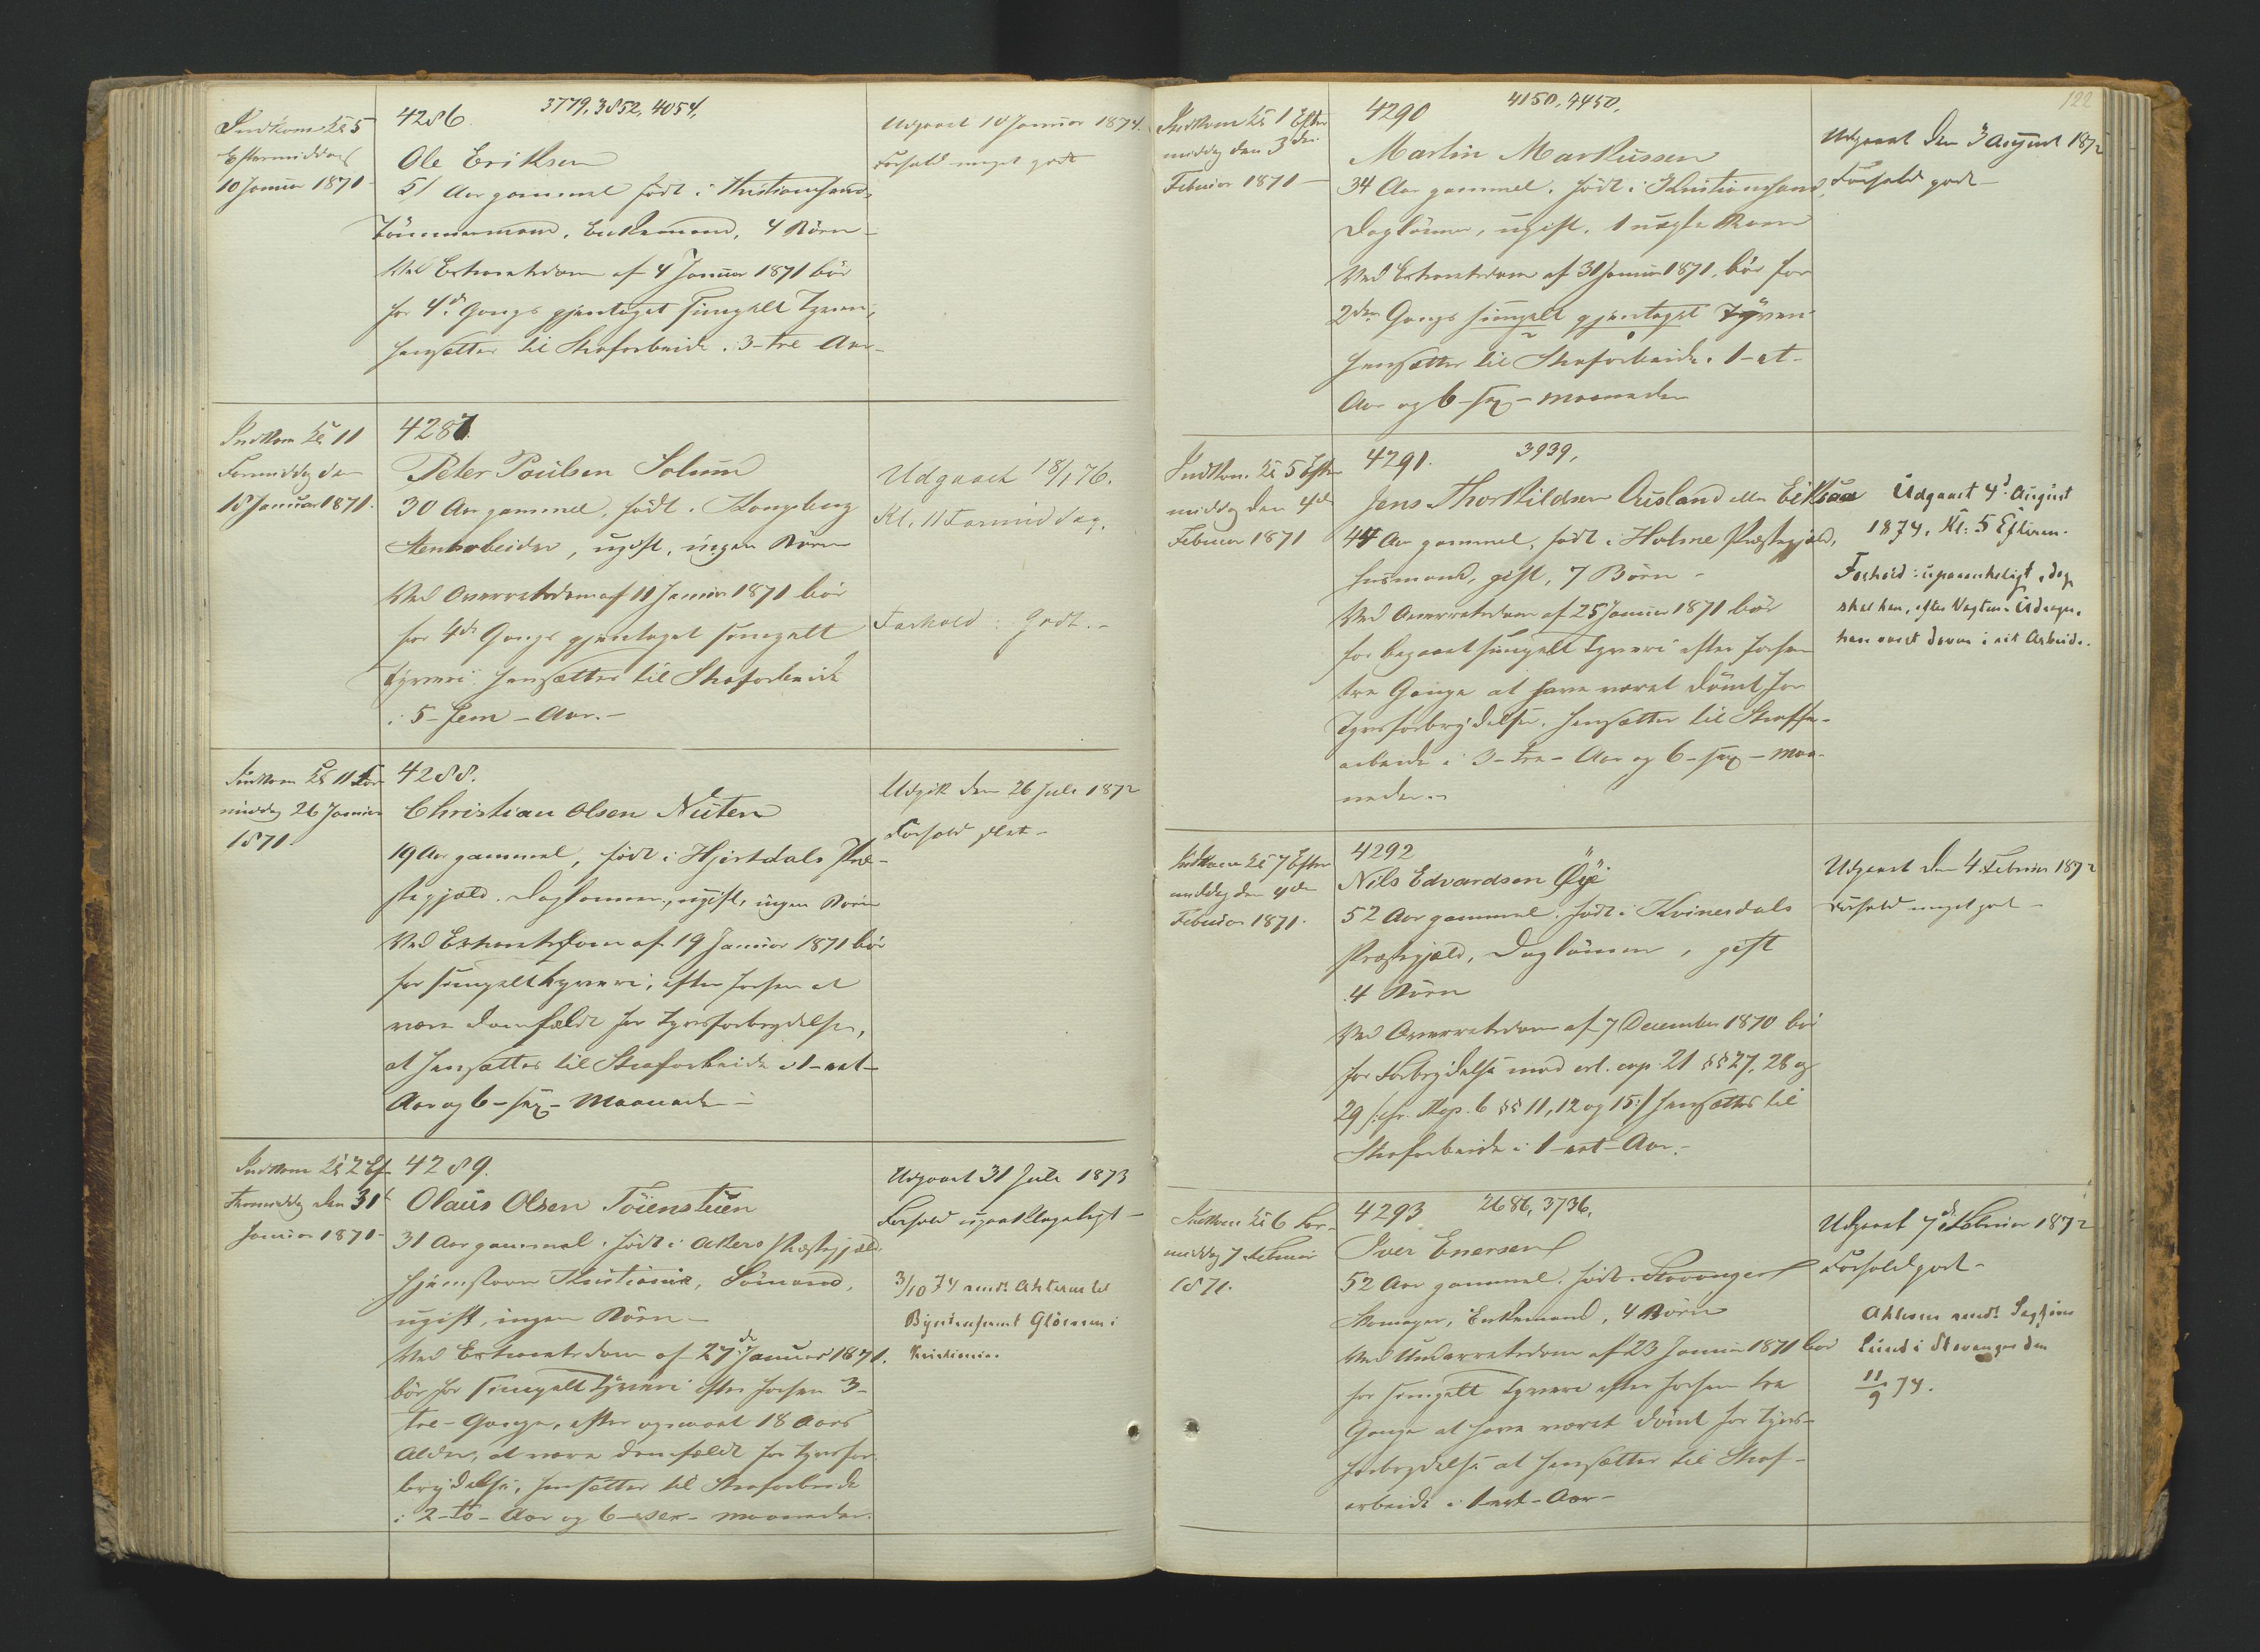 Indkom Kl 5
Eftermiddag
10 Januar 1871
4286. 3779, 3852, 4054,
Ole Eriksen
51 Aar gammel født i Kristianssand,
Tömmermand, Enkemand, 4 Börn -
Ved Extraretsdom af 4 Januar 1871 bör
for 4de Gangs gjentaget simpelt Tyveri,
hensættes til Strafarbeide i 3 - tre Aar -
Udgaaet 10 Januar 1874.
Forhold meget godt
Indkom Kl 11
Formiddag den
18 Januar 1871.
4287.
Peter Paulsen Solum
30 Aar gammel, født i Kongsberg
Stenarbeider, ugift, ingen Börn
Ved Overretsdom af 11 Januar 1871 bör
for 4de Gangs gjentaget simpelt
Tyveri hensættes til Strafarbeide
i 5 - fem - Aar. -
Udgaaet 18/1 76.
Kl. 11 Formiddag.
Forhold: Godt. -
Indkom Kl 11 For
middag 26 Januar
1871.
4288.
Christian Olsen Nuten
19 Aar gammel, født i Hjertdals Præ-
stegjæld. Daglönner, ugift, ingen Börn
Ved Extraretsdom af 19 Januar 1871 bör
for simpelt Tyveri, efter forhen at
være domfældt for Tyvsforbrydelse,
at hensættes til Strafarbeide i 1 - eet -
Aar og 6 - sex - Maaneder -
Udgik den 26 Juli 1872
Forhold slet -
Indkom Kl 2 Ef-
termiddag den 31t
Januar 1871 -
4289.
Olaus Olsen Töienstuen
31 Aar gammel, født i Akers Præstegjæld.
Hjemstavn Kristiania, Sömand,
ugift, ingen Börn -
Ved Extraretsdom af 27de Januar 1871.
bör for simpelt Tyveri efter forhen 3 -
tre - Gange, efter opnaaet 18 Aars
Alder, at være domfældt for Tyvsfor-
brydelse, hensættes til Strafarbeide
i 2 - to - Aar og 6 - sex - maaneder.
Udgaaet 31 Juli 1873
Forhold upaaklageligt -
3/10 74 sendt Akterne til
Kristiania.
122
Indkom Kl 1 Efter
middag den 3die
Februar 1871 -
4290 4150, 4450,
Martin Markussen
34 Aar gammel, født i Kristianssand,
Daglönner, ugift, 1 uægte Barn
Ved Extraretsdom af 31 Januar 1871, bör for
2den Gangs simpelt gjentaget Tyveri
hensættes til Strafarbeide i 1 - et -
Aar og 6 - sex - maaneder
Udgaaet den 3 August 1872
Forhold godt -
Indkom Kl 5 Efter
middag den 4de
Februar 1871
4291. 3939,
Jens Thorkildsen Ausland eller Eiksaa
44 Aar gammel, født i Holme Præstegjæld,
Husmand, gift, 7 Börn -
Ved Overretsdom af 25 Januar 1871 bör
for begaaet simpelt Tyveri efter forhen
tre Gange at have været dömt for
Tyvsforbrydelse, hensættes til Straf-
arbeide i 3 - tre - Aar og 6 - sex - maa-
neder. -
Udgaaet 4de August
1874, Kl: 5 Efterm.
Forhold: upaaankeligt, dog
skal han, efter Vagtens Udsagn,
have været doven i sit Arbeide.
Indkom Kl 7 Efter
middag den 4de
Februar 1871.
4292
Nils Edvardsen Øye
52 Aar gammel, født i Kvinesdals
Præstegjæld, Daglönner, gift
4 Börn
Ved Overretsdom af 7 December 1870 bör
for Forbrydelse mod crl. cap. 21 §§ 27, 28 og
29 /: cfr. Kap. 6 §§ 11, 12 og 15 :/ hensættes til
Strafarbeide i 1 - eet - Aar. -
Udgaaet den 4. Februar 1872
Forhold meget godt -
Indkom Kl 6 For-
middag 7 Februar
1871.
4293 2686, 3736,
Iver Enersen
52 Aar gammel, født i Stavanger
Skomager, Enkemand, 4 Börn
Ved Underretsdom af 23 Januar 1871 bör
for simpelt Tyveri efter forhen tre
Gange at have været dömt for Tyvs-
forbrydelse at hensættes til Straf-
arbeide i 1 - eet - Aar -
Udgaaet 7de Februar 1872
Forhold godt -
Akterne sendt
Lund i Stavanger den
11/9 74.